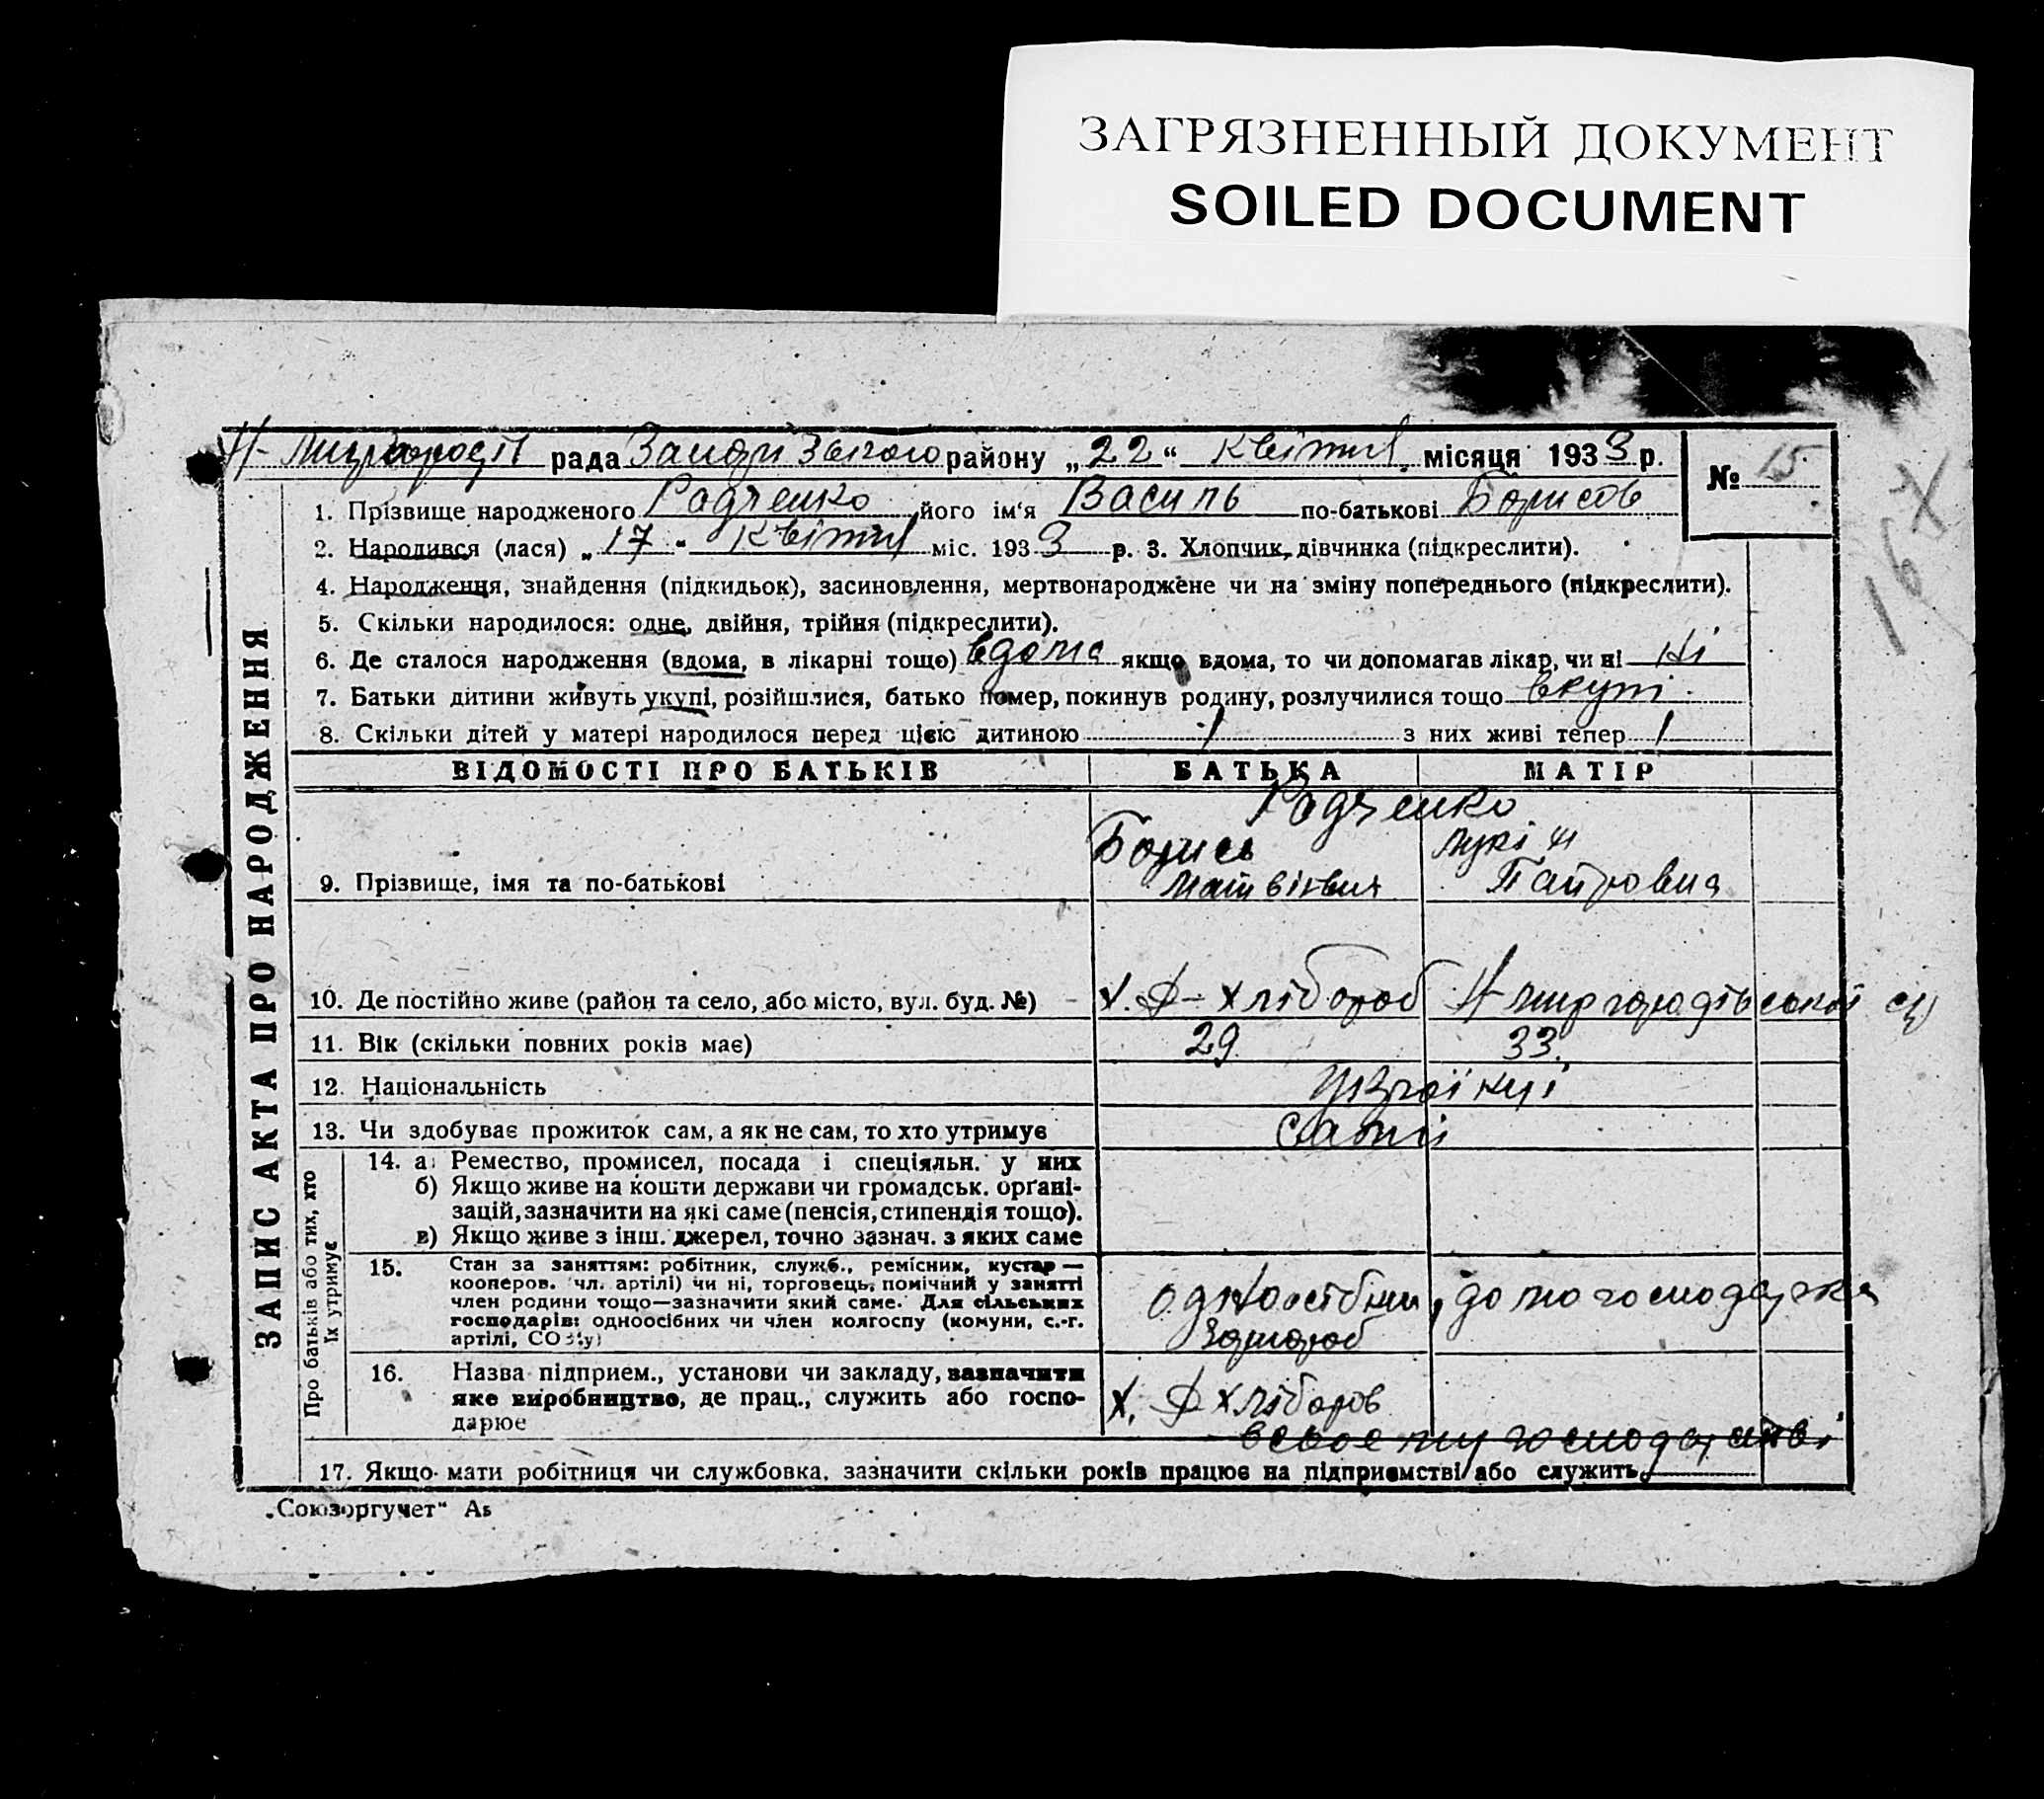 ЗАГРЯЗНЕННЫЙ ДОКУМЕНТ
SOILED DOCUMENT
рада району „22“ квітня місяця 1933 р.
№ 15
167
1. Прізвище народженого Радченко його ім'я Василь по-батькові Борисов
2. Народився (лася) „17“ квітня міс. 1933 р. 3. Хлопчик, дівчинка (підкреслити).
4. Народження, знайдення (підкидьок), засиновлення, мертвонароджене чи на зміну попереднього (підкреслити).
5. Скільки народилося: одне, двійня, трійня (підкреслити).
6. Де сталося народження (вдома, в лікарні тощо) вдома якщо вдома, то чи допомагав лікар, чи ні Ні
7. Батьки дитини живуть укупі, розійшлися, батько помер, покинув родину, розлучилися тощо вкупі
8. Скільки дітей у матері народилося перед цією дитиною 1 з них живі тепер 1
ЗАПИС АКТА ПРО НАРОДЖЕННЯ
ВІДОМОСТІ ПРО БАТЬКІВ БАТЬКА МАТІР
Радченко
Борись
9. Прізвище, імя та по-батькові
10. Де постійно живе (район та село, або місто, вул. буд. №) Х. Ф – Хлібороб
11. Вік (скільки повних років має) 29 33.
12. Національність Українці
13. Чи здобуває прожиток сам, а як не сам, то хто утримує Самі
Про батьків або тих, хто
їх утримує
14. а) Ремество, промисел, посада і спеціяльн. у них
б) Якщо живе на кошти держави чи громадськ. органі-
зацій, зазначити на які саме (пенсія, стипендія тощо).
в) Якщо живе з інш. джерел, точно зазнач. з яких саме
15. Стан за заняттям: робітник, служб., ремісник, кустар —
кооперов. чл. артілі) чи ні, торговець, помічний у занятті
член родини тощо—зазначити який саме. Для сільських
господарів: одноосібних чи член колгоспу (комуни, с.-г.
артілі, СОЗ'у)
одноосібник, домогосподарка
16. Назва підприєм., установи чи закладу, зазначити
яке виробництво, де прац., служить або госпо-
дарює
Х. Ф Хлібороб
в своєму господарстві
17. Якщо мати робітниця чи службовка, зазначити скільки років працює на підприємстві або служить
„Союзоргучет“